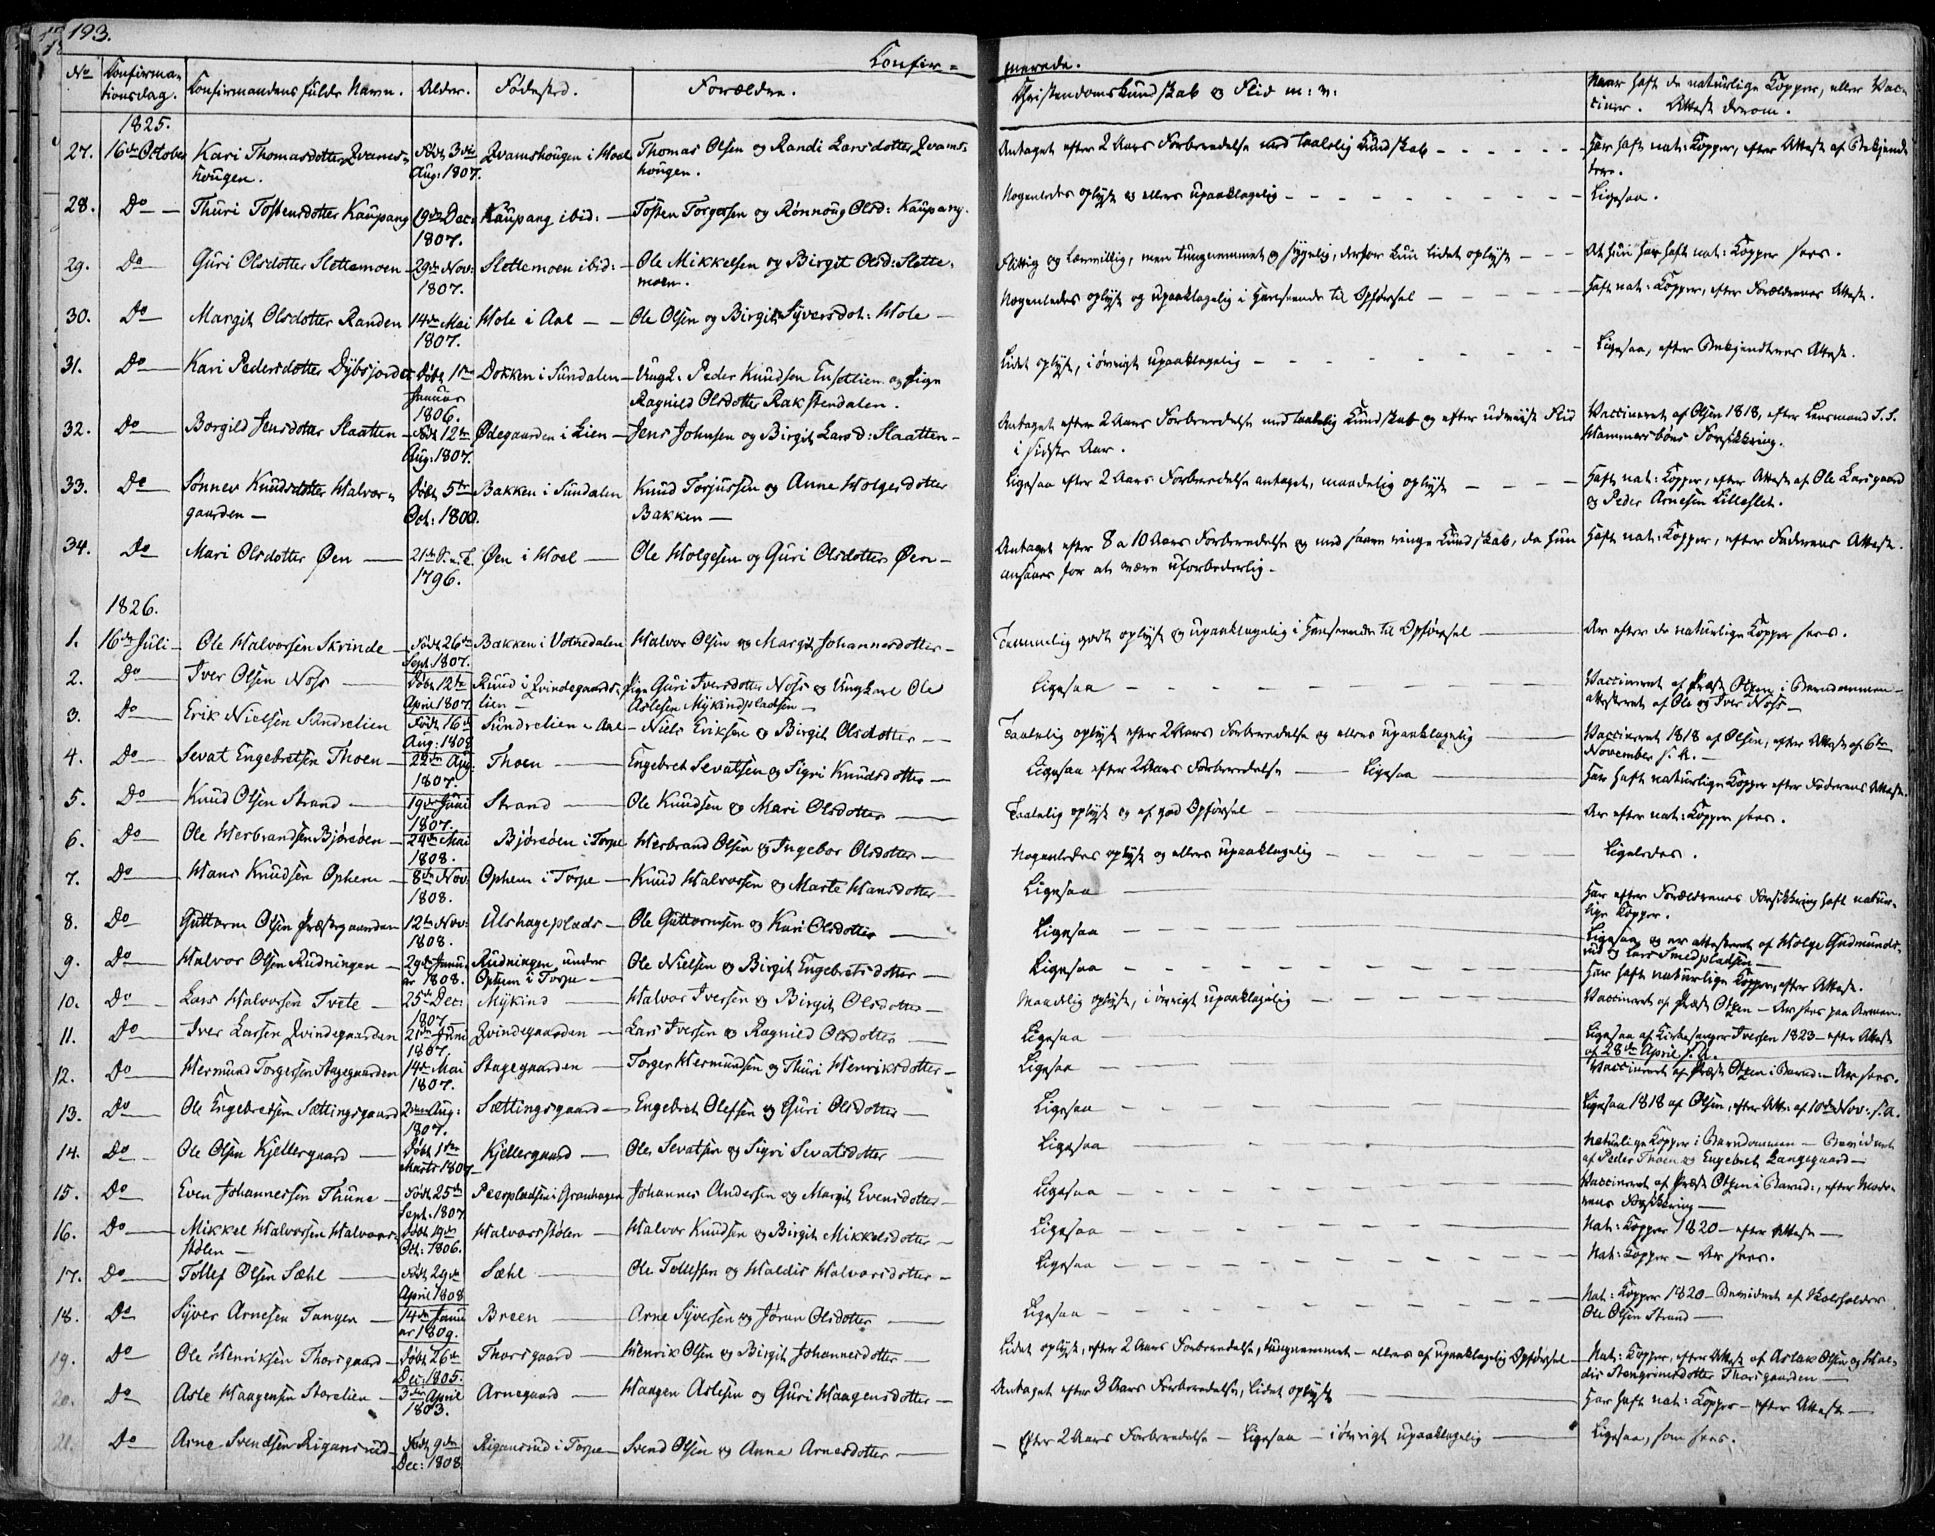 193.
Confir-
merede.
No
Confirma-
tionsdag.
Confirmandens fulde Navn.
Alder.
Fødested.
Forældre.
Christendomskundskab og Flid m: v:
Naar haft de naturlige Kopper, eller Vac-
ciner. Attest derom.
1825.
27. 16de October Kari Thomasdotter Qvams- Født 3die Qvamshougen i Hoel Thomas Olsen og Randi Larsdotter Qvams- Antaget efter 2 Aars Forberedelse med taalelig Kundskab Har haft nat: Kopper, efter Attest af Bekjend-
hougen. Aug: 1807. hougen. tere.
28. Do Thuri Tostensdotter Kaupang 19de Dec: Kaupang ibid: Tosten Torgersen og Rønnoug Olsd: Kaupang. Nogenledes oplyst og ellers upaaklagelig Ligesaa.
1807.
29. Do Guri Olsdotter Slettemoen 29de Nov: Slettemoen ibid: Ole Mikkelsen og Birgit Olsd: Slette- Flittig og lærvillig, men tungnemmet og sygelig, derfor kun lidet oplyst At hun har haft nat: Kopper sees.
1807. moen.
30. Do Margit Olsdotter Randen 14de Mai Hole i Aal Ole Olsen og Birgit Syversdot: Hole Nogenledes oplyst og upaaklagelig i Henseende til Opførsel Haft nat: Kopper, efter Forældrenes Attest.
1807.
31. Do Kari Pedersdotter Dybsjordet Døbt 1ste Dokken i Sundalen Ungk: Peder Knudsen Ensetlien og Pige Lidet oplyst, i øvrigt upaaklagelig Ligesaa, efter Bekjendteres Attest.
Januar Ragnild Olsdotter Rakstendalen.
1806.
32. Do Borgild Jensdotter Slaatten Født 12te Ødegaarden i Lien Jens Johnsen og Birgit Larsd: Slaatten Antaget efter 2 Aars Forberedelse med taalelig Kundskab og efter udmærket Flid Vaccineret af Olsen 1818, efter Lensmand S. S.
Aug: 1807. i sidste Aar. Hammersbøns Forsikkring.
33. Do Sønnev Knudsdotter Halvor- Døbt 5te Bakken i Sundalen Knud Torjussen og Anne Holgersdotter Ligesaa efter 2 Aars Forberedelse antaget, maadelig oplyst Haft nat: Kopper, efter Attest af Ole Larsgaard
gaarden Oct: 1800. Bakken og Peder Arnesen Lilleslet.
34. Do Mari Olsdotter Øen Øen i Hoel Ole Holgesen og Guri Olsdotter Øen Antaget efter 8 a 10 Aars Forberedelse og med saare ringe Kundskab, da hun Haft nat: Kopper, efter Faderens Attest.
1796. ansaaes for at være uforbederlig.
1826.
1. 16de Juli Ole Halvorsen Skrinde Født 26de Bakken i Votnedalen Halvor Olsen og Margit Johannesdotter Temmelig godt oplyst og upaaklagelig i Henseende til Opførsel Ar efter de naturlige Kopper sees.
Sept. 1807.
2. Do Iver Olsen Noss Døbt 12te Ruud i Qvindegaards- Pige Guri Iversdotter Noss og Ungkarl Ole Ligesaa Vaccineret af Præst Otzen i Barndommen
April 1807. lien Aslesen Mykindpladsen attesteret af Ole og Iver Noss
3. Do Erik Nielsen Sundrelien Født 16de Sundrelien i Aal Niels Eriksen og Birgit Olsdotter Taalelig oplyst efter 2 Aars Forberedelse og ellers upaaklagelig Vaccineret 1818 af Olsen, efter Attest af 6te
Aug: 1808 November s. A.
4. Do Sevat Engebretsen Thoen 22de Aug: Thoen Engebret Sevatsen og Sigri Knudsdotter Ligesaa efter 2 Aars Forberedelse Ligesaa Har haft naturlige Kopper efter Faderens Attest.
1807.
5. Do Knud Olsen Strand 19de Juni Strand Ole Knudsen og Mari Olsdotter Taalelig oplyst og af god Opførsel Ar efter nat: Kopper sees.
1807.
6. Do Ole Herbrandsen Bjøreøen 24de Mai Bjøreøen i Torpe Herbrand Olsen og Ingebor Olsdotter Nogenledes oplyst og ellers upaaklagelig Ligeledes.
1808.
7. Do Hans Knudsen Ophem 8de Nov: Ophem i Torpe Knud Halvorsen og Marte Hansdotter Ligesaa Har efter Forældrenes Forsikkring haft natur-
1808. lige Kopper.
8. Do Guttorm Olsen Præstegaarden 12te Nov: Ulshageplads Ole Guttormsen og Kari Olsdotter Ligesaa Ligesaa, og er attesteret af Holge Gudmunds-
1808. rud og Lars Smedpladsen
9. Do Halvor Olsen Rudningen 29de Janu- Rudningen under Ole Nielsen og Birgit Engebretsdotter Ligesaa Har haft naturlige Kopper, efter Attest.
ar 1808. Ophem i Torpe
10. Do Lars Halvorsen Tvete 25de Dec: Mykind Halvor Iversen og Birgit Olsdotter Maadelig oplyst, i øvrigt upaaklagelig Vaccineret af Præst Otzen – Ar sees paa Armen.
1807
11. Do Iver Larsen Qvindegaarden 21de Juni Qvindegaarden Lars Iversen og Ragnild Olsdotter Ligesaa Ligesaa af Kirkesanger Iversen 1823 – efter Attest
1807 af 28de April s. A.
12. Do Hermund Torgersen Stagegaarden 14de Mai Stagegaarden Torger Hermundsen og Thuri Henriksdotter Ligesaa Vaccineret af Præst Otzen i Barnd: – Ar sees.
1807.
13. Do Ole Engebretsen Sættingsgaard 2den Aug: Sættingsgaard Engebret Olefsen og Guri Olsdotter Ligesaa Ligesaa 1818 af Olsen, efter Att: af 10de Nov: s. A.
1807.
14. Do Ole Olsen Kjellergaard Døbt 1ste Kjellergaard Ole Sevatsen og Sigri Sevatsdotter Ligesaa Naturlige Kopper i Barndommen – Bevidnet
Marts 1807 af Peder Thoen og Engebret Langegaard
15. Do Even Johannessen Thune Født 25de Peerpladsen i Granhagen Johannes Andersen og Margit Evensdotter Ligesaa Vaccineret af Præst Otzen i Barnd:, efter Mode-
Sept. 1807 rens Forsikkring
16. Do Mikkel Halvorsen Halvors- Døbt 19de Halvorsstølen Halvor Knudsen og Birgit Mikkelsdotter Ligesaa Nat: Kopper 1820 – efter Attest
stølen Oct: 1806.
17. Do Tollef Olsen Sæhl Født 29de Sæhl Ole Tollefsen og Haldis Halvorsdotter Ligesaa Nat: Kopper – Ar sees.
April 1808
18. Do Syver Arnesen Tangen 14de Janu- Breen Arne Syversen og Jøran Olsdotter Ligesaa Nat: Kopper 1820 – Bevidnet af Skoleholder
ar 1809. Ole Olsen Strand
19. Do Ole Henriksen Thorsgaard Døbt 26de Thorsgaard Henrik Olsen og Birgit Johannesdotter Lidet oplyst, efter 2 Aars Forberedelse, tungnemmet – ellers af upaaklagelig Opførsel Nat: Kopper, efter Attest af Aslak Olsen og Hal-
Dec: 1805. dis Stengrimsdotter Thorsgaarden
20. Do Asle Haagensen Storelien 3die April Arnegaard Haagen Aslesen og Guri Haagensdotter Antaget efter 3 Aars Forberedelse, lidet oplyst Har haft nat: Kopper – efter Attest
1803.
21. Do Arne Svendsen Rigansrud Født 9de Rigansrud i Torpe Svend Olsen og Anne Arnesdotter Efter 2 Aars Forberedelse – Ligesaa – i øvrigt upaaklagelig Ligesaa, som sees.
Dec: 1808